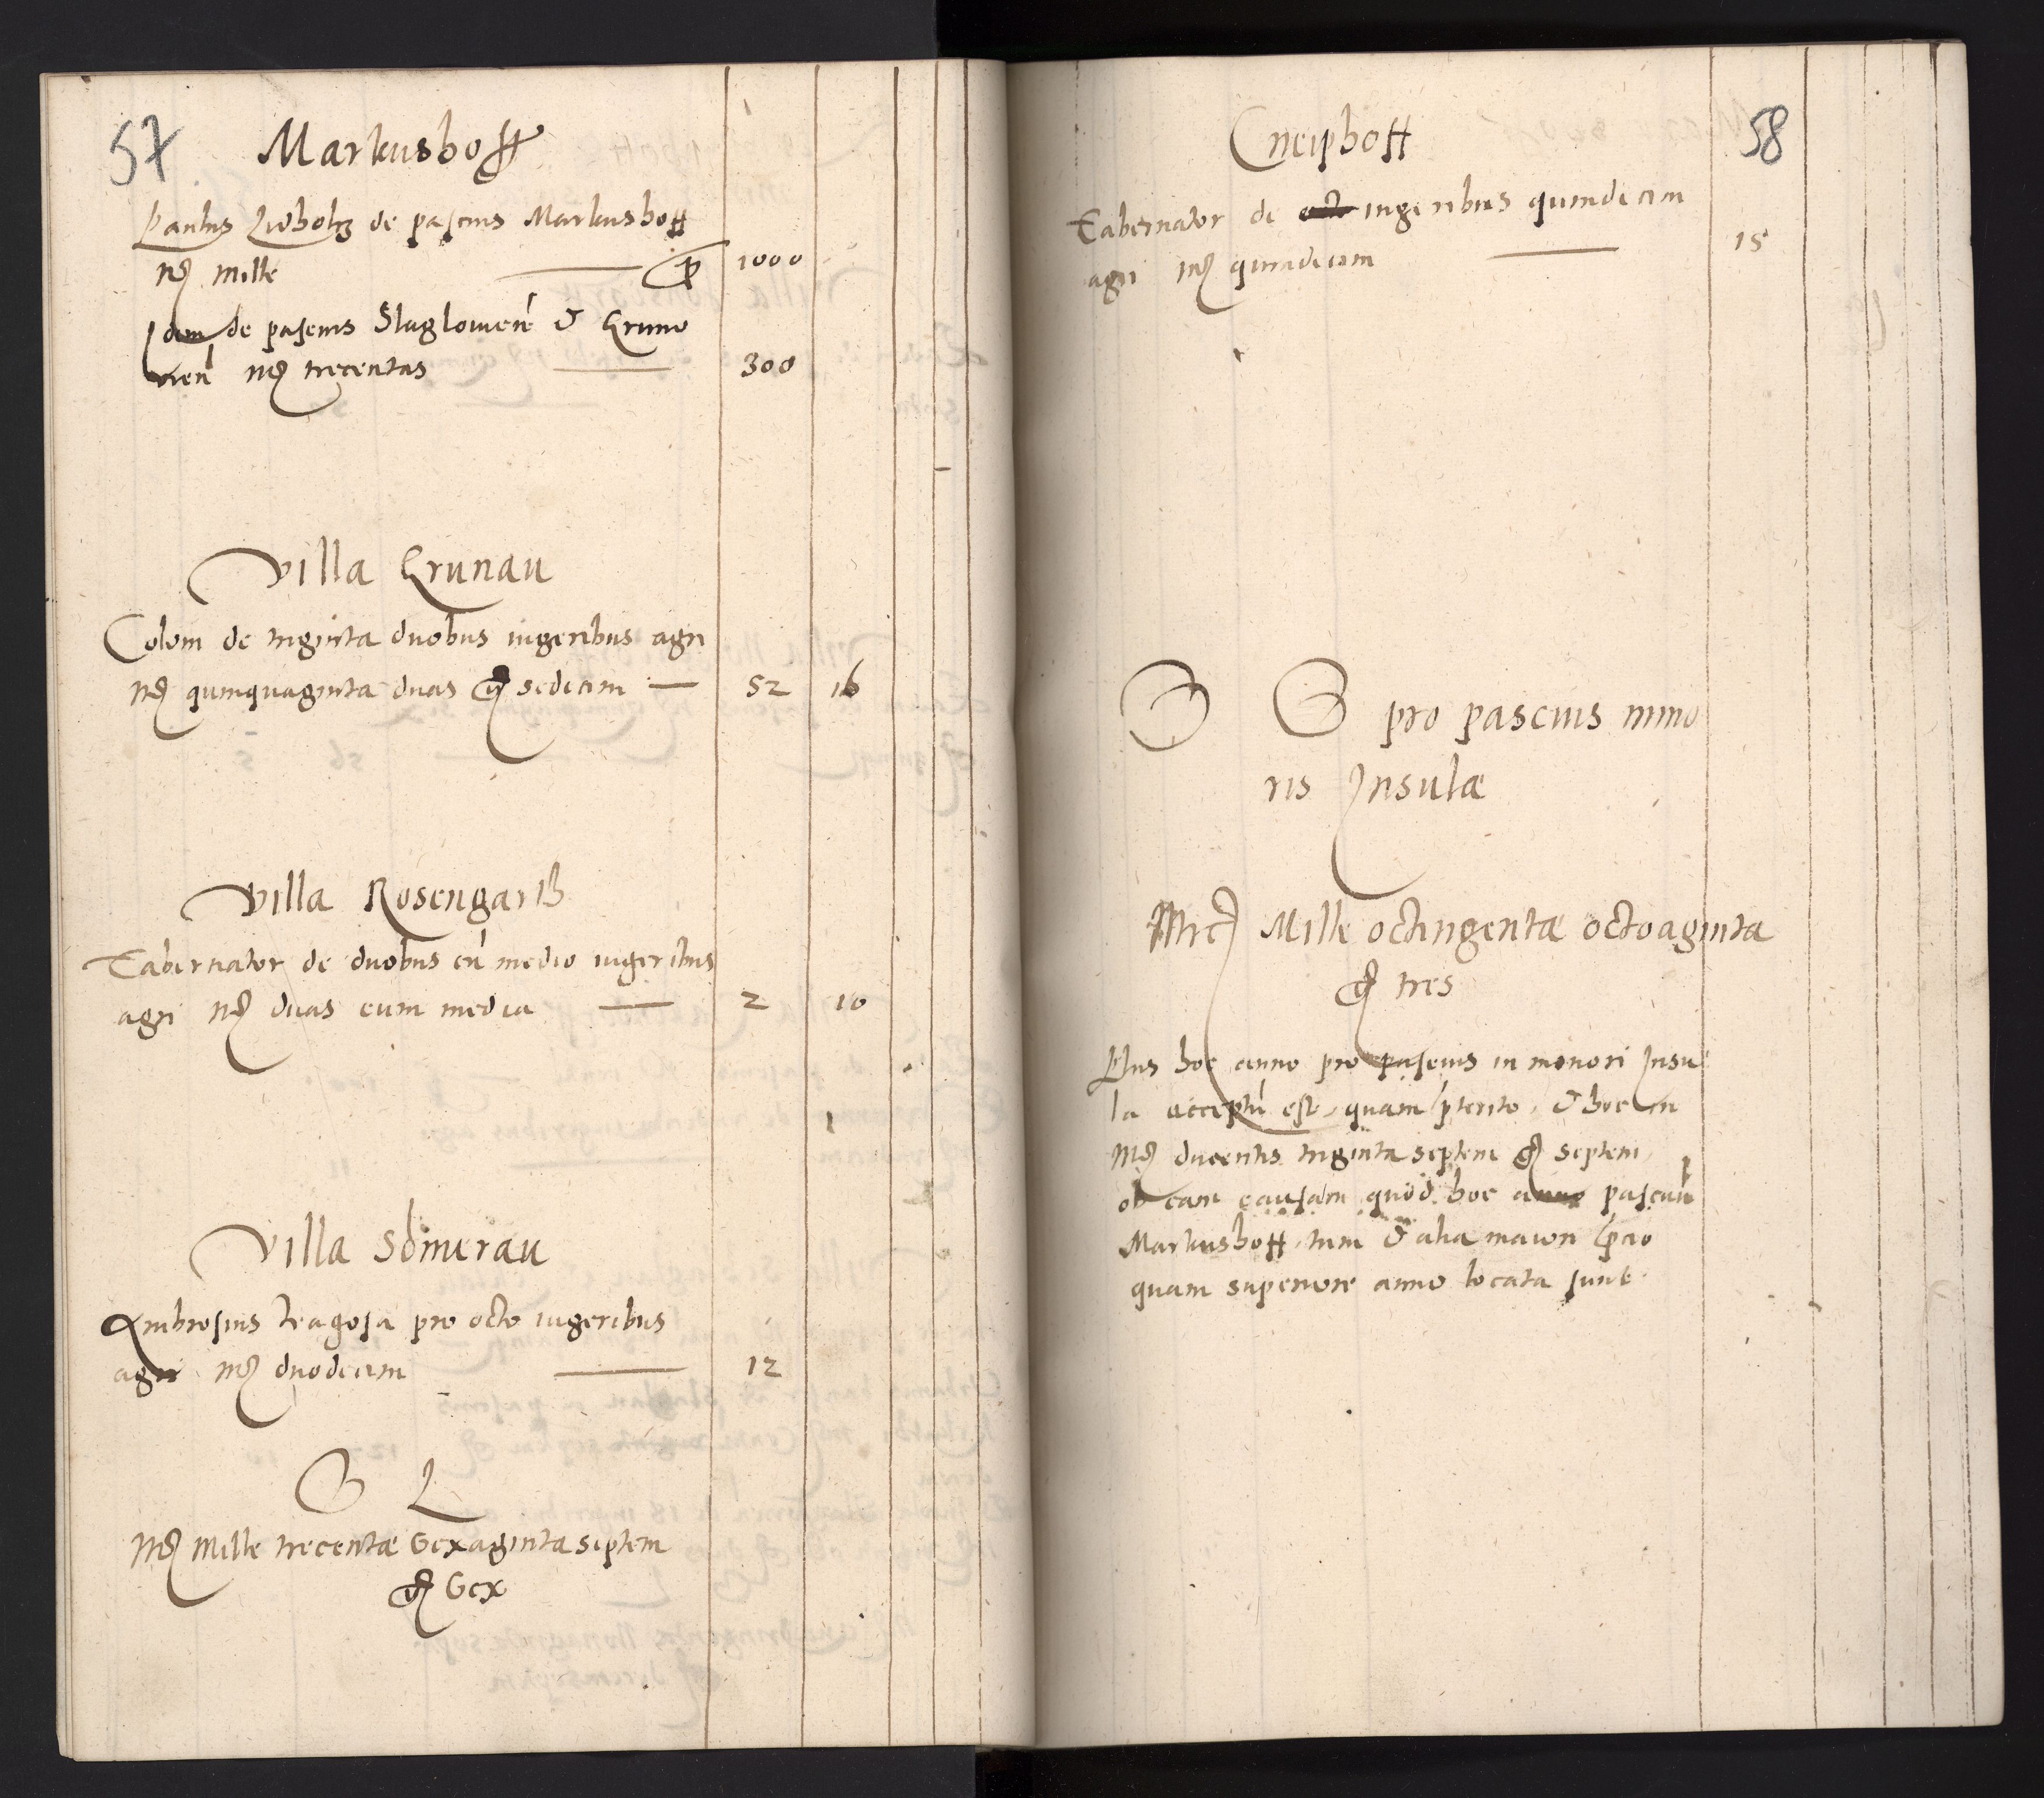 57
Markushoff
Paulus Liebholtz de pascuis Markushoff
mrc mille 1000
Idem de pascuis Slaglowen̄ & Gruno
vien̄ mrc trecentas 300
Villa Grunau
Coloni de triginta duobus iugeribus agri
mrc quinquaginta duas gr sedecim 52 16
Villa Rosengarth
Tabernator de duobus cū medio iugeribus
agri mrc duas cum media 2 10
Villa Somerau
Ambrosius Kragosa pro octo iugeribus
agri mrc duodecim 12
S L
mrc Mille trecentæ Sexaginta septem
gr Sex
58
Cneiphoff
Tabernator de iugeribus quindecim
agri mrc quindecim 15
S S pro pascuis mino
ris Insulæ
Mrc Mille octingentæ octoaginta
gr tres
Plus hoc anno pro pascuis in minori Insu
la acceptū est, quam pterito, & hoc in
mrc ducentis triginta septem gr septem,
ob eam causam quod hoc anno pascua
Markushoff, tum & alia maiori pcio
quam superiore anno locata sunt.